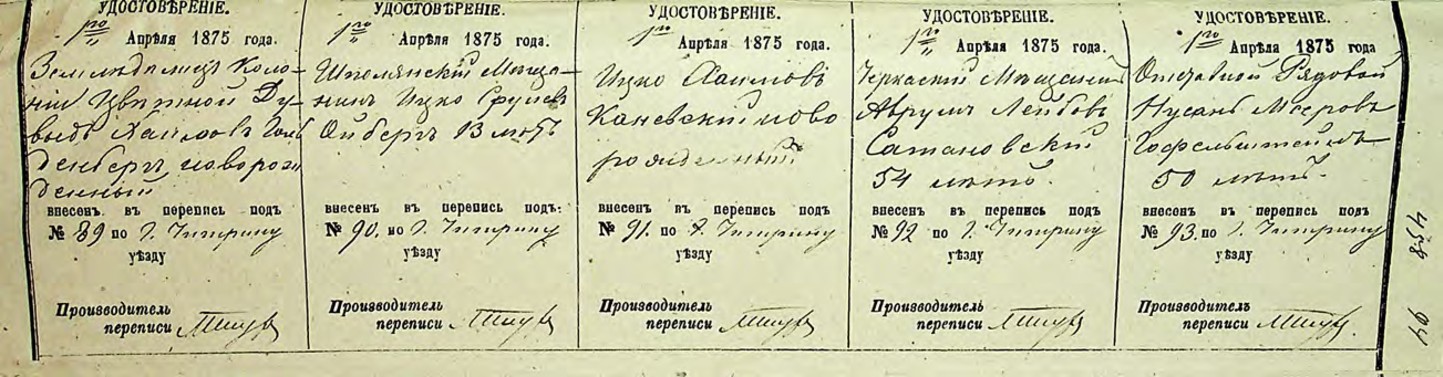 УДОСТОВѢРЕНІЕ.
1го Апрѣля 1875 года.
Земледѣлецъ Коло-
ніи Цвѣтной Ду-
выдъ Хаимовъ Голь
денбергъ, новорож
денный
внесенъ въ перепись подъ
№ 89 по г. Чигирину
уѣзду
Производитель
переписи
УДОСТОВѢРЕНІЕ.
1го Апрѣля 1875 года.
Шполянскій Мѣща-
нинъ Ицко Срулевъ
Ойбергъ 13 лѣтъ
внесенъ въ перепись подъ:
№ 90. по г. Чигирину
уѣзду
Производитель
переписи
УДОСТОВѢРЕНІЕ.
1го Апрѣля 1875 года.
Ицко Хаимовъ
Каневскій ново
рожденный
внесенъ въ перепись подъ
№ 91. по г. Чигирину
уѣзду
Производитель
переписи
УДОСТОВѢРЕНІЕ.
1го Апрѣля 1875 года.
Черкаскій Мѣщанинъ
Аврумъ Лейбовъ
Сатановскій
54 лѣтъ.
внесенъ въ перепись подъ
№ 92 по г. Чигирину
уѣзду
Производитель
переписи
УДОСТОВѢРЕНІЕ.
1го Апрѣля 1875 года
Отставной Рядовой
Нусанъ Мееровъ
Гофельштейнъ
50 лѣтъ.
внесенъ въ перепись подъ
№ 93. по г. Чигирину
уѣзду
Производитель
переписи
458
94